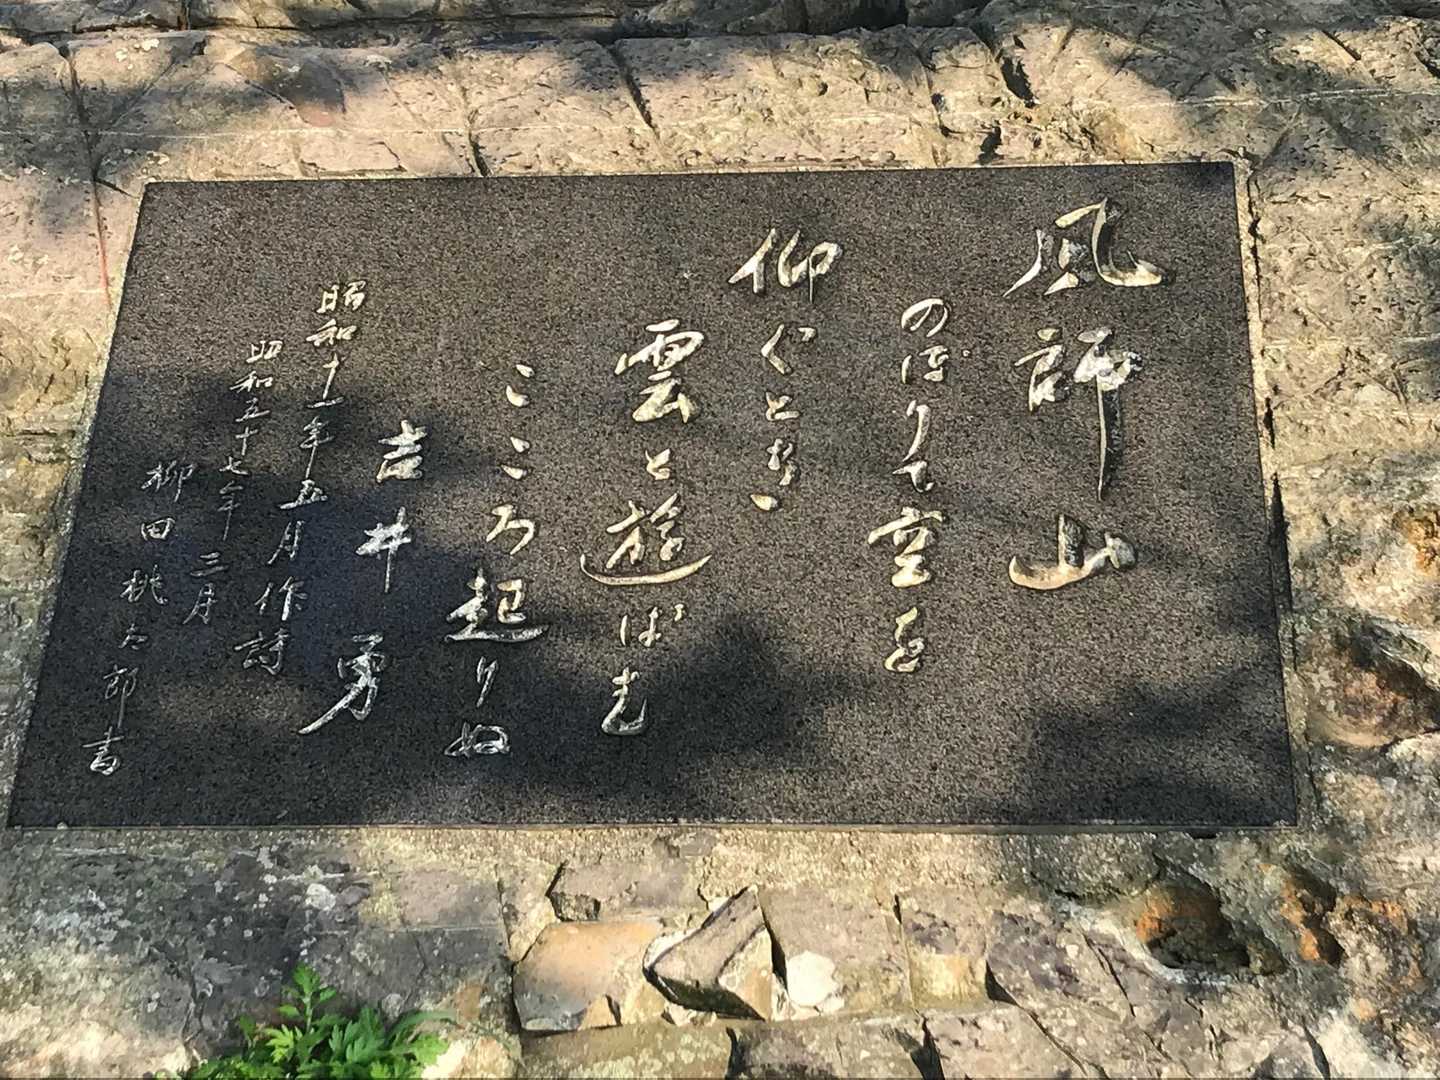 風師山
のぼりて空を
仰ぐとき
雲と遊ばむ
こころ起りぬ
吉井勇
昭和十一年五月作詩
昭和五十七年三月
柳田桃太郎書